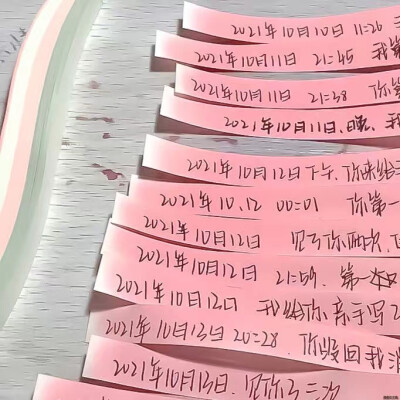 2021年10月10日 11:26
2021年10月11日 21:45 我第
2021年10月11日 21:38 你第
2021年10月11日.晚.我
2021年10月12日下午.你来给
2021年10.12 00:01 你第一
2021年10月12日 见了你两次.
2021年10月12日 21:59. 第一次
2021年10月12日 我给你亲手写
2021年10月13日 20:28. 你秒回我消
2021年10月13日.见你了三次